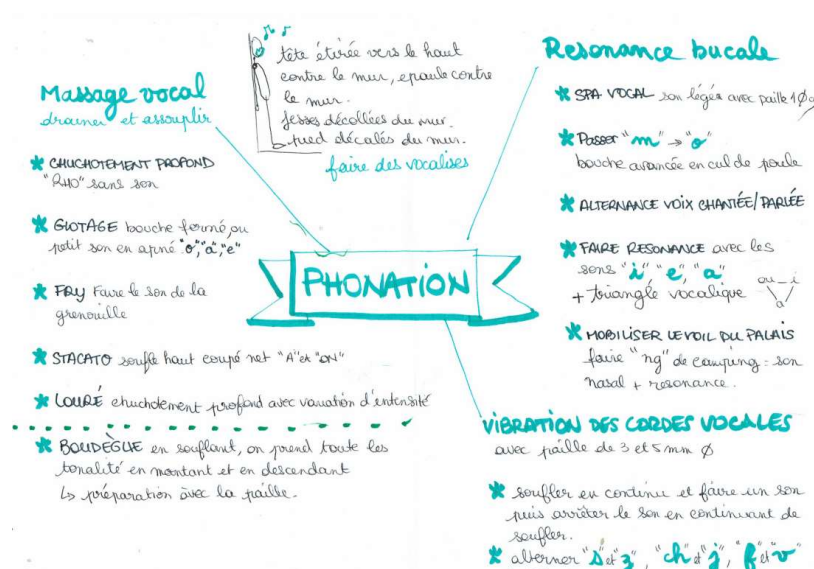 Massage vocal
drainer et assouplir
* CHUCHOTEMENT PROFOND
"RHO" sans son
* GLOTAGE bouche fermé, ou
petit son en apné "o", "a", "e"
* FRY Faire le son de la
grenouille
* STACATO souffle haut coupé net "A" et "ON"
* LOURÉ chuchotement profond avec variation d'intensité
* BOUDÈGUE en soufflant, on prend toute les
tonalité en montant et en descendant
↳ préparation avec la paille.
tête étirée vers le haut
contre le mur, epaule contre
le mur.
fesses décollées du mur.
pied décalés du mur.
faire des vocalises
PHONATION
Resonance bucale
* SPA VOCAL son léger avec paille 1Ø
* Passer "m" → "o"
bouche avancée en cul de poule
* ALTERNANCE VOIX CHANTÉE/PARLÉE
* FAIRE RESONANCE avec les
sons "i", "e", "a"
+ triangle vocalique ou _ i
a
* MOBILISER LE VOIL DU PALAIS
faire "ng" de camping : son
nasal + resonance.
VIBRATION DES CORDES VOCALES
avec paille de 3 et 5 mm Ø
* souffler en continu et faire un son
puis arrêter le son en continuant de
souffler.
* alterner "s" et "z", "ch" et "j", "f" et "v"